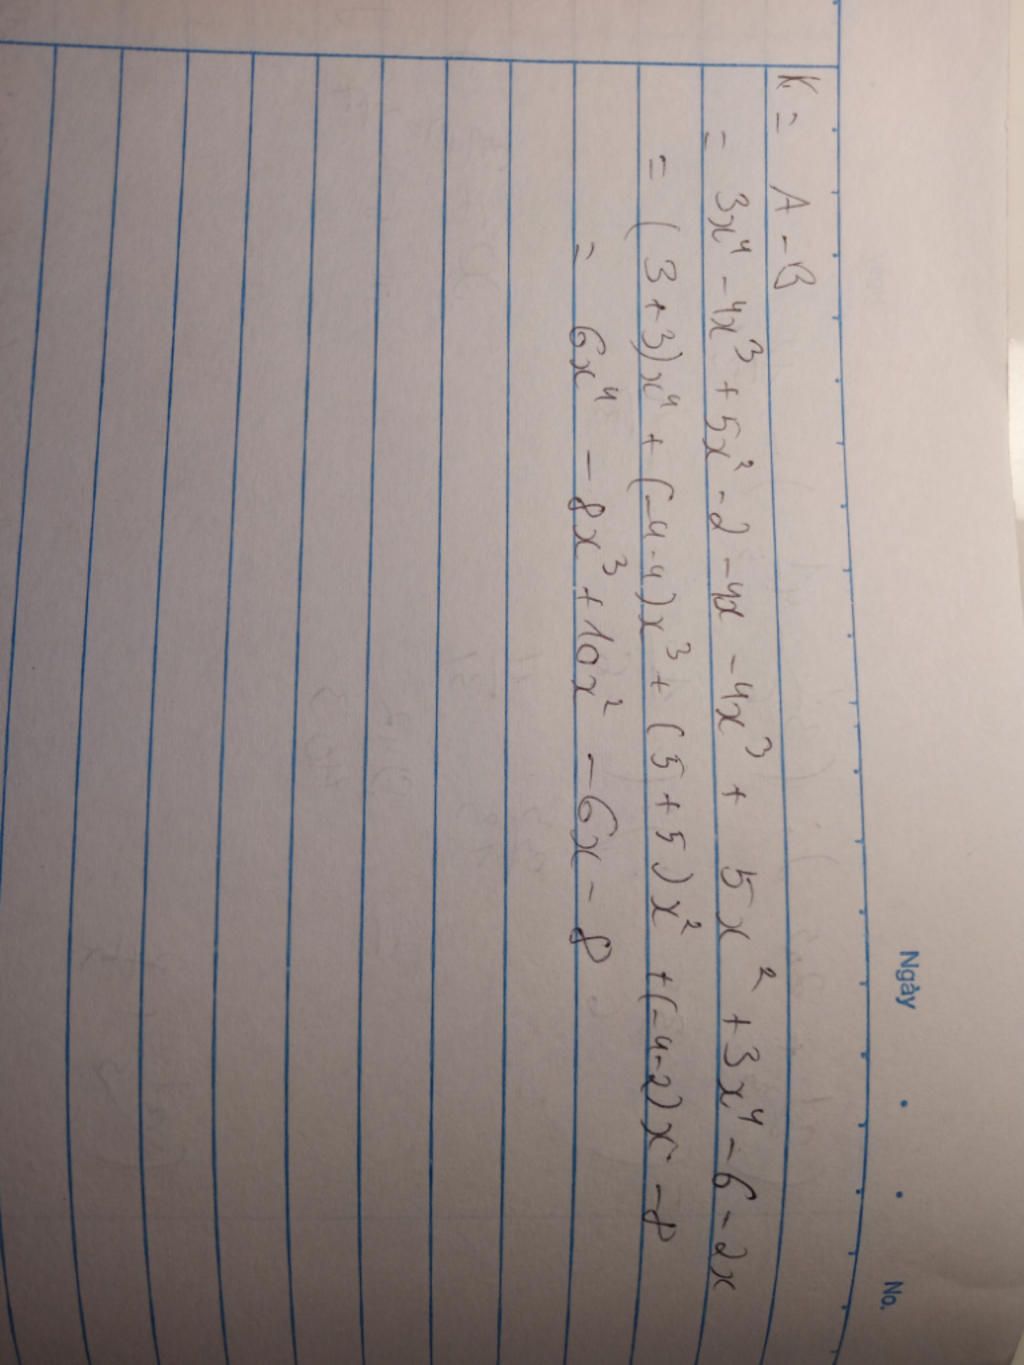 Ngày No.
K = A - B
= 3x⁴ - 4x³ + 5x² - 2 - 4x - 4x³ + 5x² + 3x⁴ - 6 - 2x
= (3+3)x⁴ + (-4-4)x³ + (5+5)x² + (-4-2)x - 8
= 6x⁴ - 8x³ + 10x² - 6x - 8